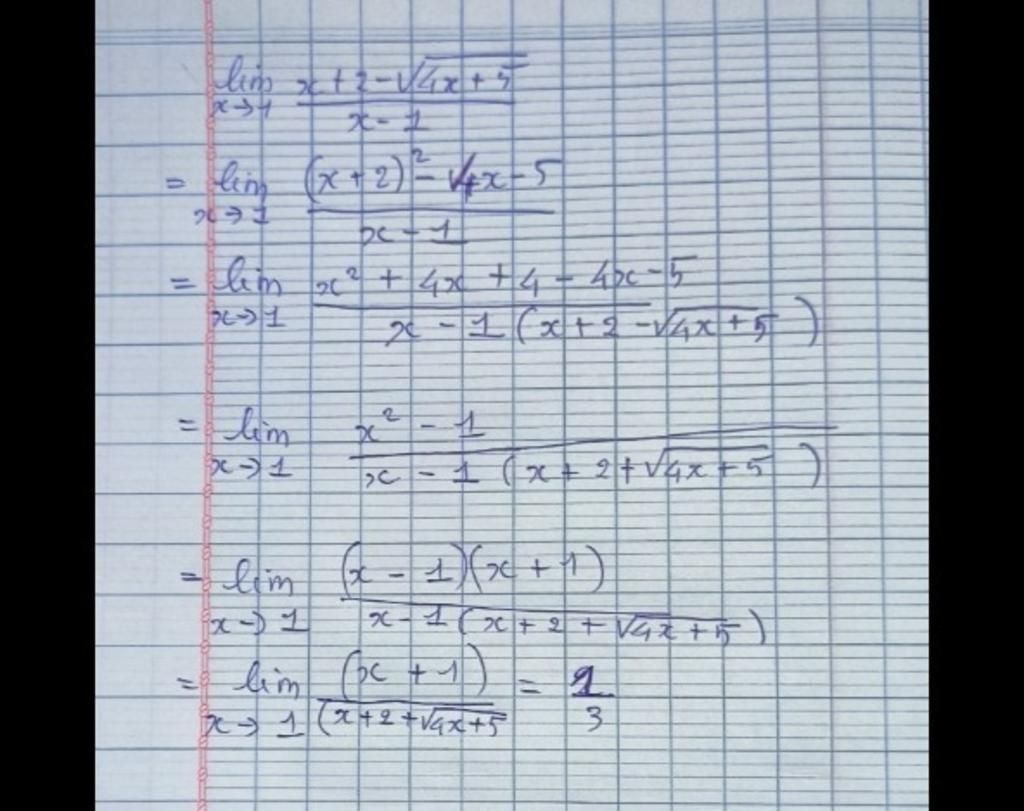 lim x→1 (x+2-√(4x+5))/(x-1)
= lim x→1 ((x+2)²-4x-5)/(x-1)
= lim x→1 (x²+4x+4-4x-5)/(x-1(x+2-√(4x+5)))
= lim x→1 (x²-1)/(x-1(x+2+√(4x+5)))
= lim x→1 ((x-1)(x+1))/(x-1(x+2+√(4x+5)))
= lim x→1 (x+1)/(x+2+√(4x+5)) = 1/3